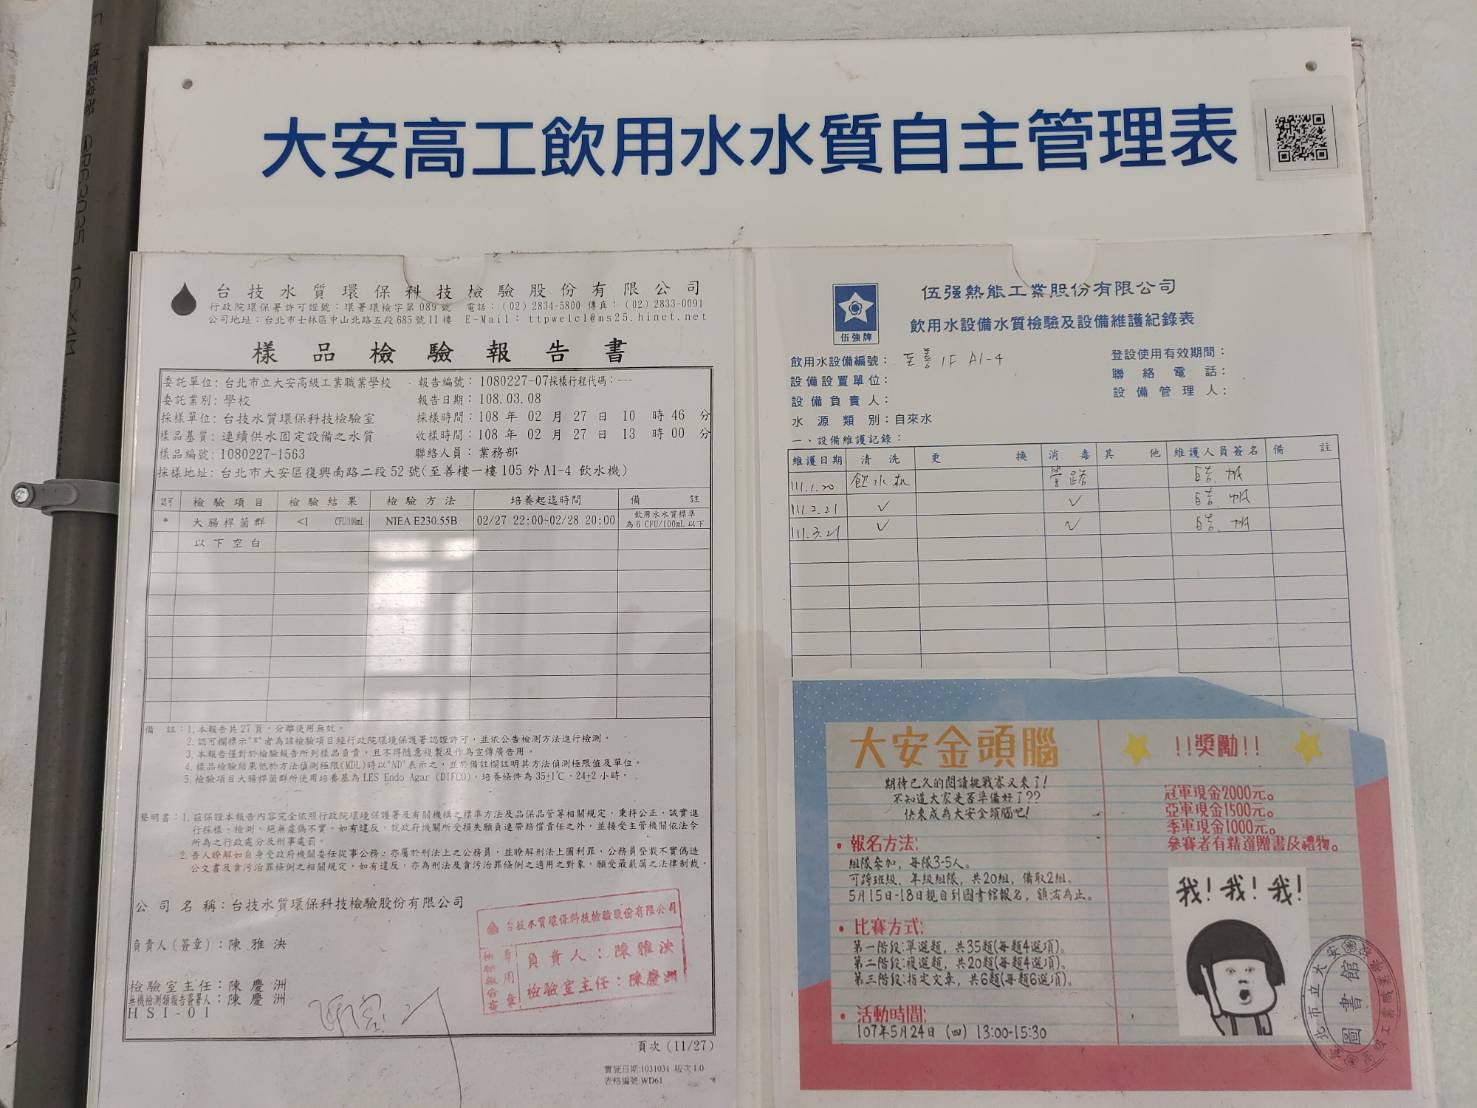 大安高工飲用水水質自主管理表
台技水質環保科技檢驗股份有限公司
行政院環保署許可證號：環署環檢字第089號 電話：(02)2834-5800 傳真：(02)2833-0091
公司地址：台北市士林區中山北路五段685號11樓 E-Mail：ttpwelcl@ms25.hinet.net
樣品檢驗報告書
委託單位：台北市立大安高級工業職業學校 報告編號：1080227-07採樣行程代碼：---
委託業別：學校 報告日期：108.03.08
採樣單位：台技水質環保科技檢驗室 採樣時間：108 年 02 月 27 日 10 時 46 分
樣品基質：連續供水固定設備之水質 收樣時間：108 年 02 月 27 日 13 時 00 分
樣品編號：1080227-1563 聯絡人員：業務部
採樣地址：台北市大安區復興南路二段52號(至善樓一樓105外A1-4 飲水機)
認可 檢驗項目 檢驗結果 檢驗方法 培養起迄時間 備註
* 大腸桿菌群 <1 CFU/100mL NIEA E230.55B 02/27 22:00-02/28 20:00 飲用水水質標準
為6 CFU/100mL以下
以下空白
備 註：1.本報告共27頁，分離使用無效。
2.認可欄標示"*"者為該檢驗項目經行政院環境保護署認證許可，並依公告檢測方法進行檢測。
3.本報告僅對於檢驗報告所列樣品負責，且不得隨意複製及作為宣傳廣告用。
4.樣品檢驗結果低於方法偵測極限(MDL)時以"ND"表示之，並於備註欄註明其方法偵測極限值及單位。
5.檢驗項目大腸桿菌群所使用培養基為LES Endo Agar (DIFCO)，培養條件為35±1℃，24±2小時。
聲明書：1.茲保證本報告內容完全依照行政院環境保護署及有關機構之標準方法及品保品管等相關規定，秉持公正、誠實進
行採樣、檢測。絕無虛偽不實，如有違反，就政府機關所受損失願負連帶賠償責任之外，並接受主管機關依法令
所為之行政處分及刑事處罰。
2.吾人瞭解如自身受政府機關委任從事公務，亦屬於刑法上之公務員，並瞭解刑法上圖利罪、公務員登載不實偽造
公文書及貪污治罪條例之相關規定，如有違反，亦為刑法及貪污治罪條例之適用之對象，願受最嚴厲之法律制裁。
公司名稱：台技水質環保科技檢驗股份有限公司
負責人(簽章)：陳雅泱
檢驗室主任：陳慶洲
無機檢測類報告簽署人：陳慶洲
HSI-01
台技水質環保科技檢驗股份有限公司
檢驗報告專用章
負責人：陳雅泱
檢驗室主任：陳慶洲
頁次(11/27)
實施日期:1031031 版次1.0
表格編號:WD61
伍強牌
伍强熱能工業股份有限公司
飲用水設備水質檢驗及設備維護紀錄表
飲用水設備編號：至善 1F A1-4 登設使用有效期間：
設備設置單位： 聯絡電話：
設備負責人： 設備管理人：
水源類別：自來水
一、設備維護記錄：
維護日期 清洗 更換 消毒 其他 維護人員簽名 備註
111.1.20 飲水机 管路
111.2.21 ✓ ✓
111.3.21 ✓ ✓
大安金頭腦
期待已久的閱讀挑戰賽又來了!
不知道大家是否準備好了??
快來成為大安金頭腦吧!
• 報名方法:
組隊參加，每隊3-5人。
可跨班級、年級組隊，共20組，備取2組。
5月15日-18日親自到圖書館報名，額滿為止。
• 比賽方式:
第一階段:單選題，共35題(每題4選項)。
第二階段:複選題，共20題(每題4選項)。
第三階段:指定文章，共6題(每題6選項)。
• 活動時間:
107年5月24日 (四) 13:00-15:30
!!獎勵!!
冠軍現金2000元。
亞軍現金1500元。
季軍現金1000元。
參賽者有精選贈書及禮物。
我! 我! 我!
圖書館